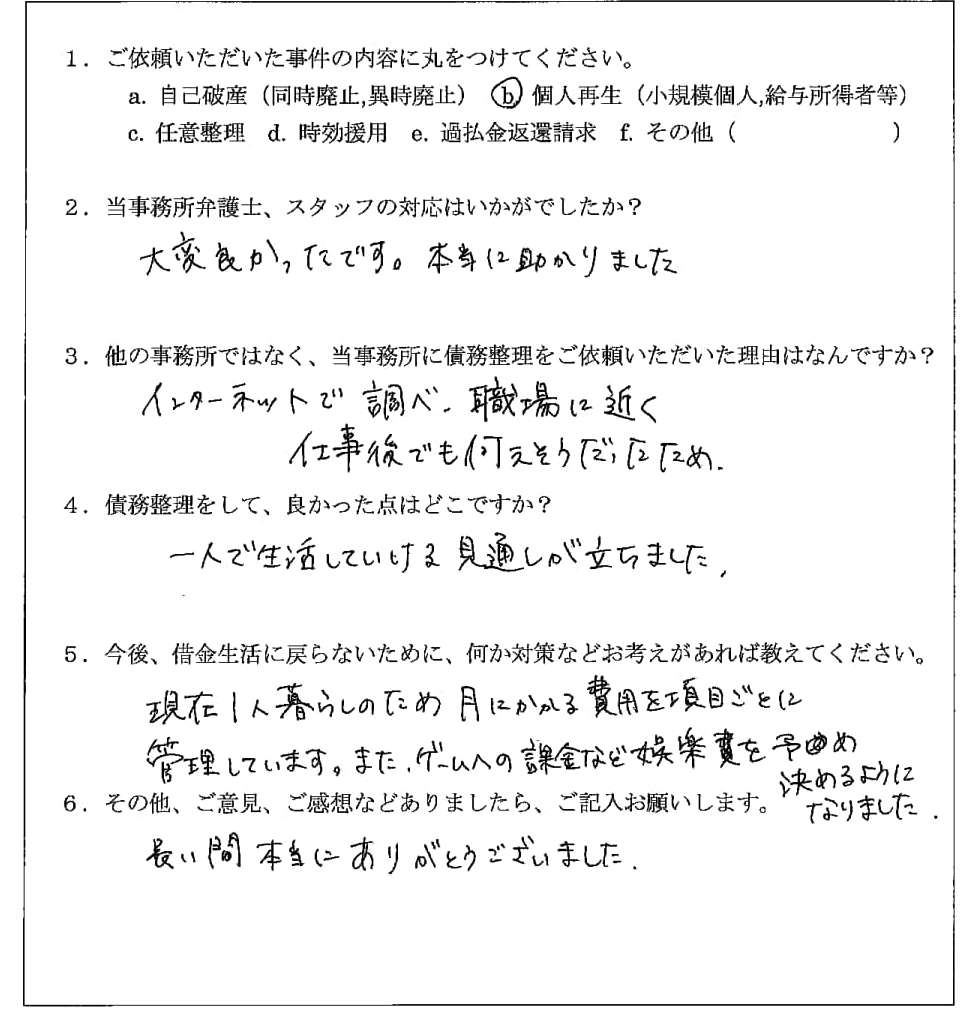 1. ご依頼いただいた事件の内容に丸をつけてください。
a. 自己破産（同時廃止,異時廃止） b. 個人再生（小規模個人,給与所得者等）
c. 任意整理 d. 時効援用 e. 過払金返還請求 f. その他（ ）
2. 当事務所弁護士、スタッフの対応はいかがでしたか？
大変良かったです。本当に助かりました
3. 他の事務所ではなく、当事務所に債務整理をご依頼いただいた理由はなんですか？
インターネットで調べ、職場に近く
仕事後でも伺えそうだったため.
4. 債務整理をして、良かった点はどこですか？
一人で生活していける見通しが立ちました.
5. 今後、借金生活に戻らないために、何か対策などお考えがあれば教えてください。
現在1人暮らしのため月にかかる費用を項目ごとに
管理しています。また、ゲームへの課金など娯楽費を予め
決めるように
なりました.
6. その他、ご意見、ご感想などありましたら、ご記入お願いします。
長い間本当にありがとうございました.